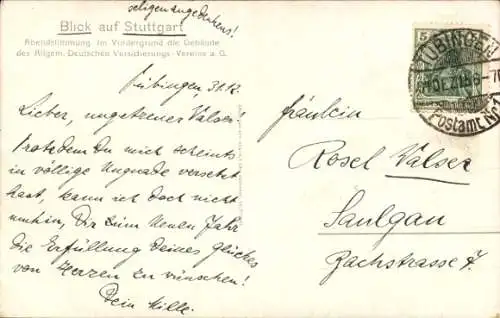 seligen angedenkens!
Blick auf Stuttgart
Abendstimmung. Im Vordergrund die Gebäude
des Allgem. Deutschen Versicherungs-Vereins a. G.
Tübingen, 31.12.
Lieber, ungetreuer Valser!
Trotzdem Du mich scheints
in völlige Ungnade versetzt
hast, kann ich doch nicht
umhin, Dir zum Neuen Jahr
die Erfüllung Deines Glückes
von Herzen zu wünschen!
Dein Mille.
Fräulein
Rosel Valser
Saulgau
Bachstrasse 7.
5
TÜBINGEN
Postamt No